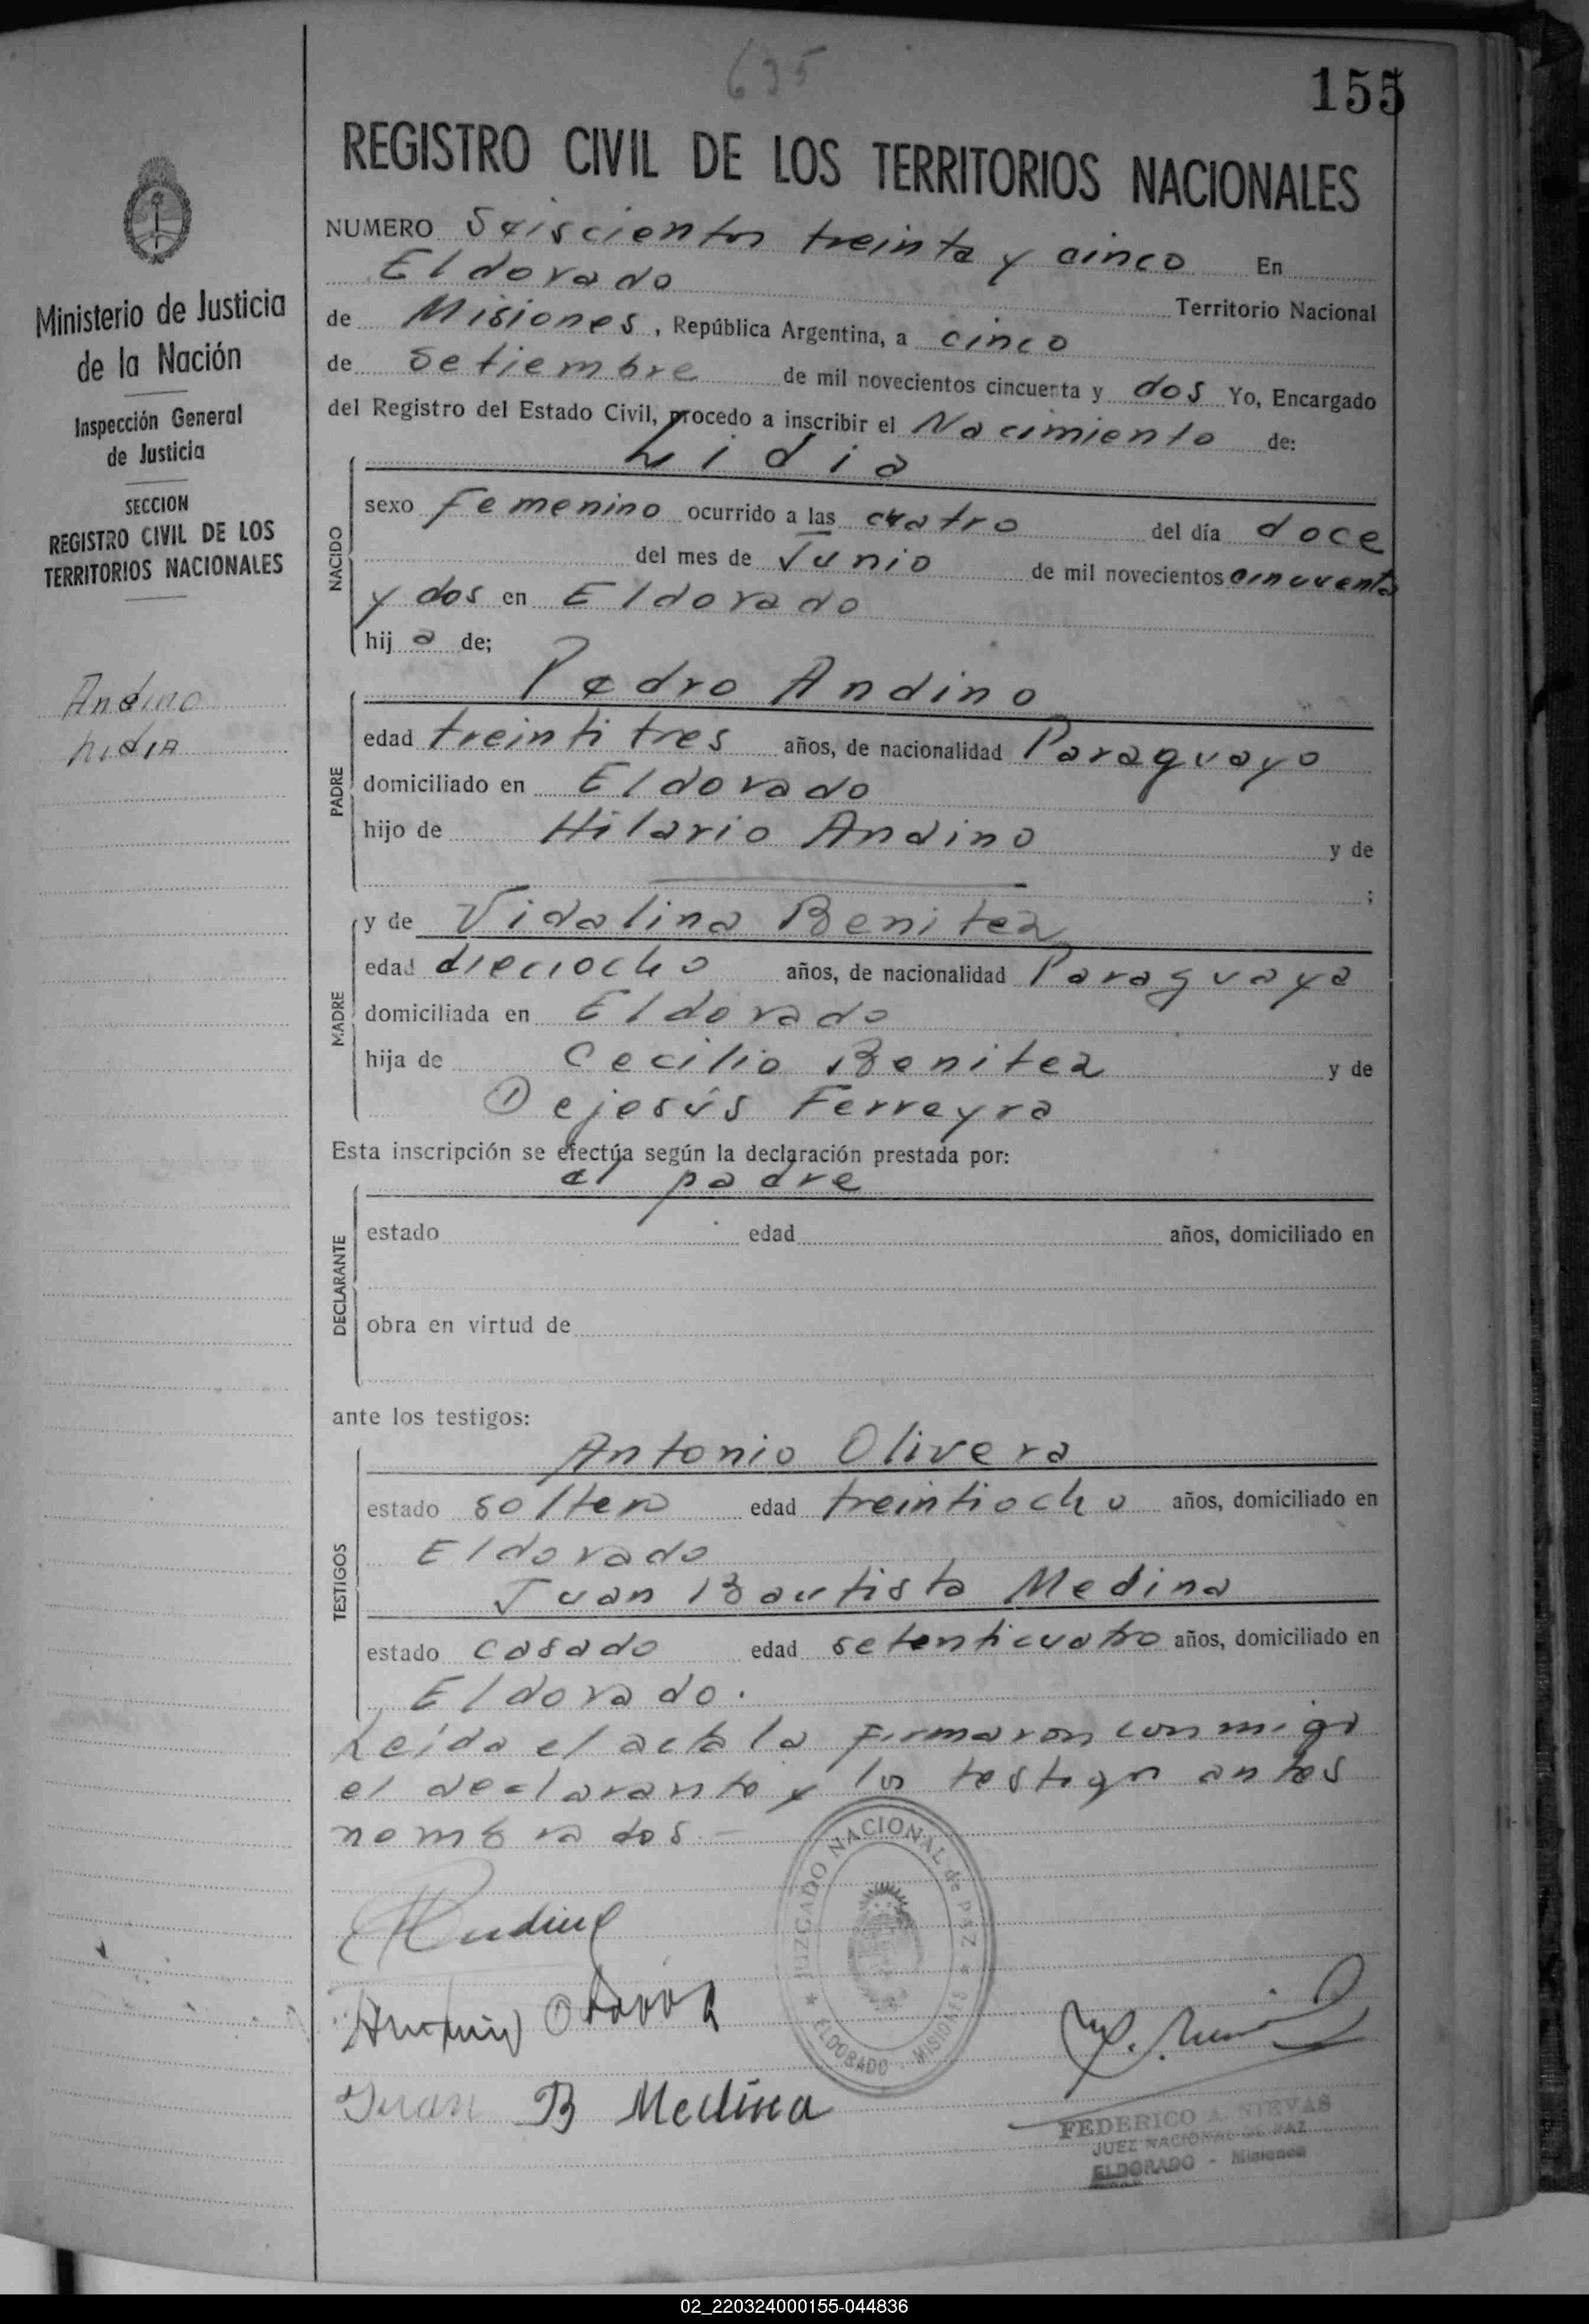 635
155
REGISTRO CIVIL DE LOS TERRITORIOS NACIONALES
Ministerio de Justicia
de la Nación
Inspección General
de Justicia
SECCION
REGISTRO CIVIL DE LOS
TERRITORIOS NACIONALES
Andino
Lidia
NUMERO Seiscientos treinta y cinco En
Eldorado Territorio Nacional
de Misiones, República Argentina, a cinco
de Setiembre de mil novecientos cincuenta y dos Yo, Encargado
del Registro del Estado Civil, procedo a inscribir el Nacimiento de:
NACIDO
Lidia
sexo Femenino ocurrido a las cuatro del día doce
del mes de Junio de mil novecientos cincuenta
y dos en Eldorado
hij a de;
PADRE
Pedro Andino
edad treintitres años, de nacionalidad Paraguayo
domiciliado en Eldorado
hijo de Hilario Andino y de
;
MADRE
y de Vidalina Benitez
edad dieciocho años, de nacionalidad Paraguaya
domiciliada en Eldorado
hija de Cecilio Benitez y de
Dejesús Ferreyra
Esta inscripción se efectúa según la declaración prestada por:
DECLARANTE
el padre
estado edad años, domiciliado en
obra en virtud de
ante los testigos:
TESTIGOS
Antonio Olivera
estado soltero edad treintiocho años, domiciliado en
Eldorado
Juan Bautista Medina
estado casado edad setenticuatro años, domiciliado en
Eldorado.
Leída el acta la firmaron conmigo
el declarante y los testigos antes
nombrados.—
JUZGADO NACIONAL de PAZ
ELDORADO - MISIONES
Andino
Antonio
Juan B Medina
FEDERICO A. NIEVAS
JUEZ NACIONAL DE PAZ
ELDORADO - Misiones
02_220324000155-044836